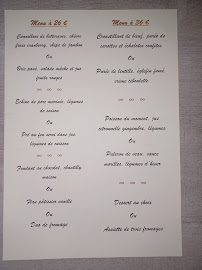 Menu à 26 €
Cannelloni de betterave, chèvre
frais cranberry, chips de jambon
Ou
Brie pané, salade mêlée et jus
fruits rouges
Echine de porc marinée, légumes
de saison
Ou
Pot au feu servi dans jus,
légumes de saison
Fondant au chocolat, chantilly
maison
Ou
Flan pâtissier vanille
Ou
Duo de fromage
Menu à 36 €
Croustillant de bœuf, purée de
carottes et échalotes confites
Ou
Purée de lentille, églefin fumé,
crème ciboulette
Poisson du moment, jus
citronnelle gingembre, légumes
Ou
Paleron de veau, sauce
morilles, légumes d'hiver
Dessert au choix
Ou
Assiette de trois fromages